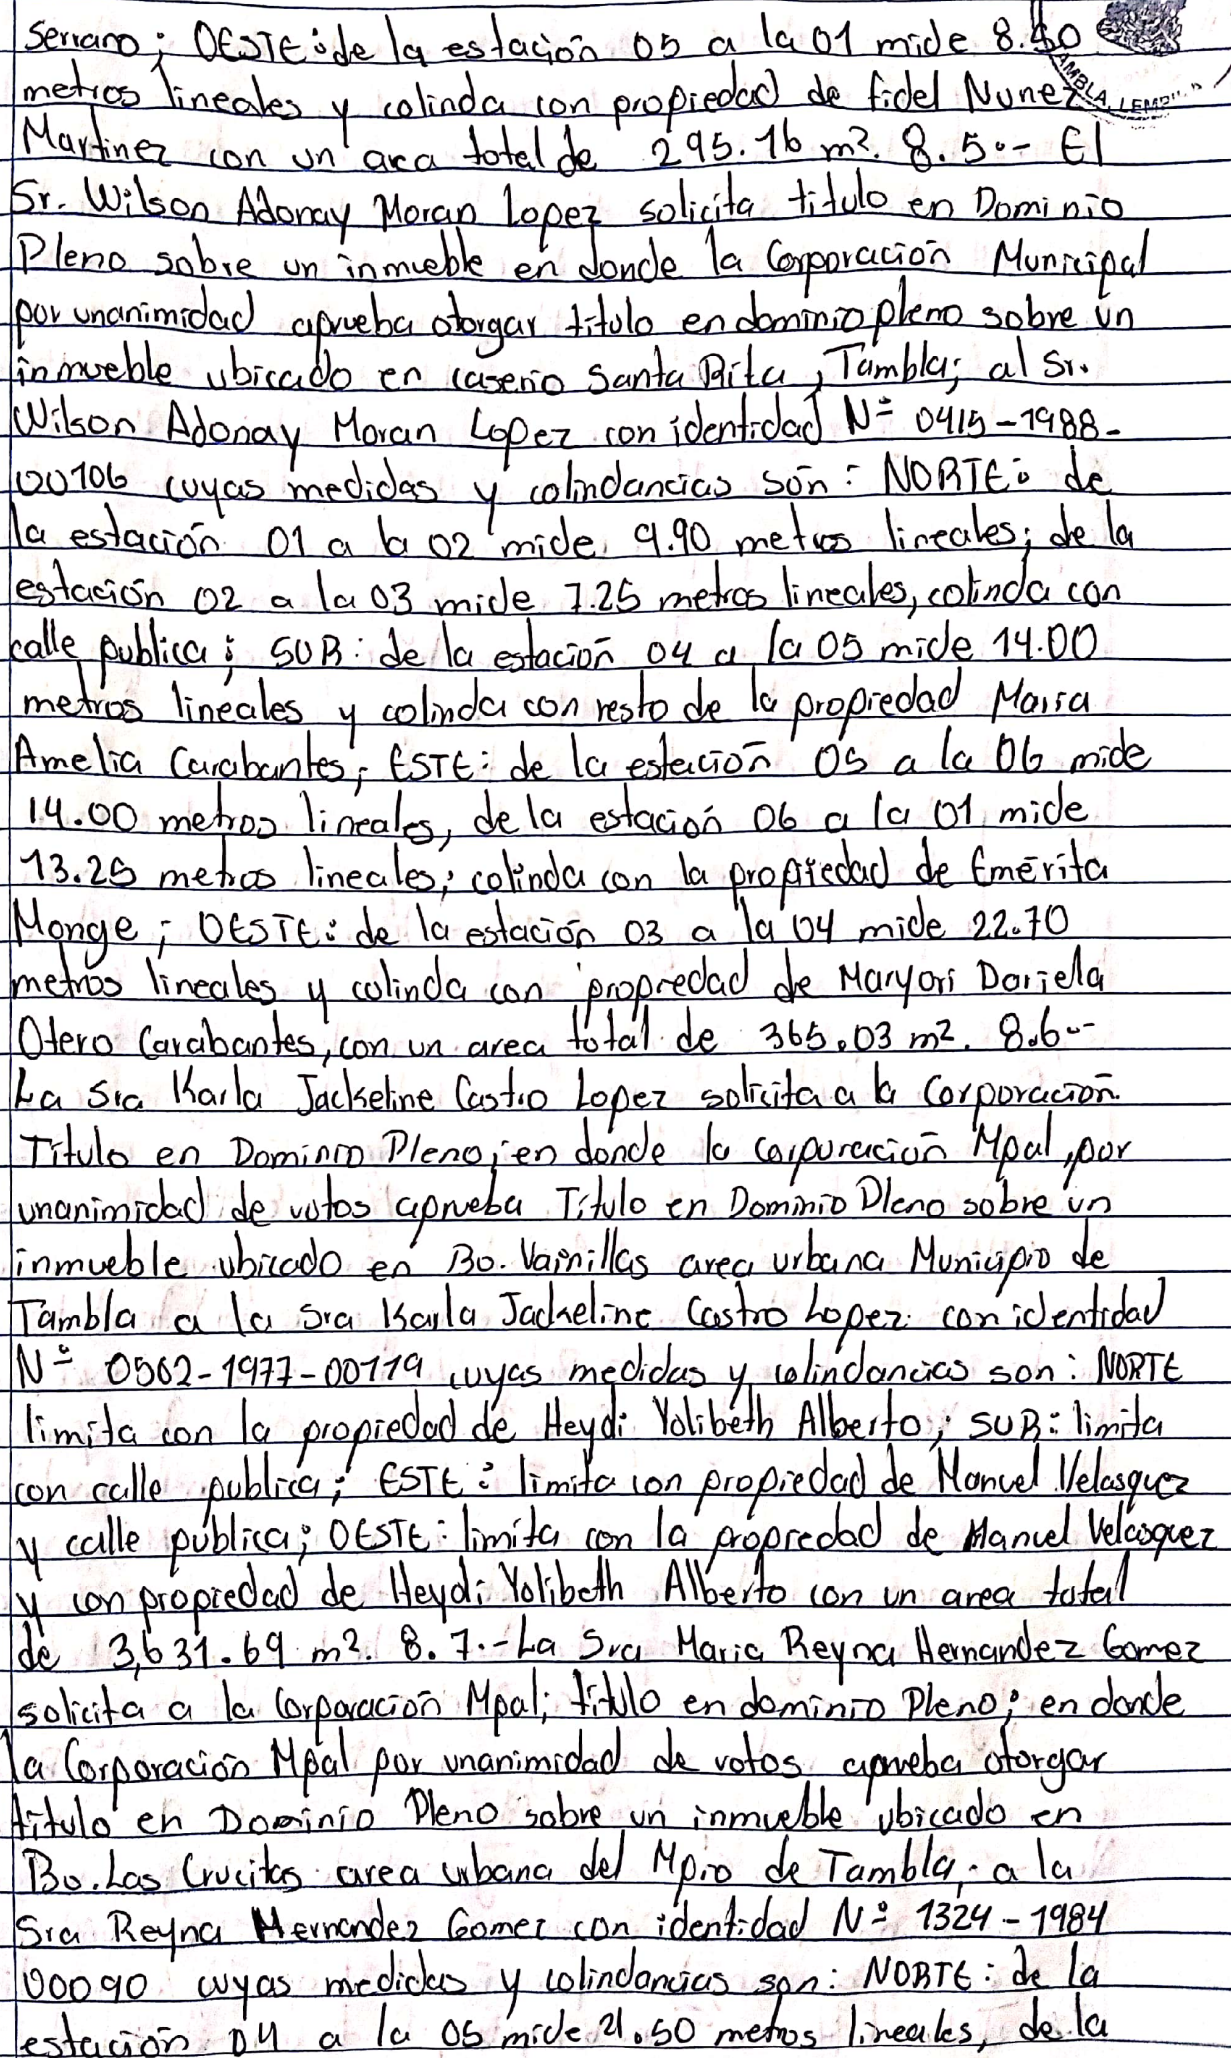 Serrano; OESTE: de la estación 05 a la 01 mide 8.50
metros lineales y colinda con propiedad de fidel Nunez
AMBLA, LEMP
Martinez con un area total de 295.16 m². 8.5.- El
Sr. Wilson Adonay Moran Lopez solicita titulo en Dominio
Pleno sobre un inmueble en donde la Corporación Municipal
por unanimidad aprueba otorgar titulo en dominio pleno sobre un
inmueble ubicado en caserio Santa Rita, Tambla; al Sr.
Wilson Adonay Moran Lopez con identidad Nº 0415-1988-
00106 cuyas medidas y colindancias són: NORTE: de
la estación 01 a la 02 mide 9.90 metros lineales; de la
estación 02 a la 03 mide 7.25 metros lineales, colinda con
calle publica; SUR: de la estación 04 a la 05 mide 14.00
metros lineales y colinda con resto de la propiedad Maria
Amelia Carabantes; ESTE: de la estación 05 a la 06 mide
14.00 metros lineales, de la estación 06 a la 01 mide
13.25 metros lineales; colinda con la propiedad de Emérita
Monge; OESTE: de la estación 03 a la 04 mide 22.70
metros lineales y colinda con propiedad de Maryori Dariela
Otero Carabantes, con un area total de 365.03 m². 8.6.-
La Sra Karla Jackeline Castro Lopez solicita a la Corporación
Titulo en Dominio Pleno; en donde la corporación Mpal, por
unanimidad de votos aprueba Titulo en Dominio Pleno sobre un
inmueble ubicado en Bo. Vainillas area urbana Municipio de
Tambla a la Sra Karla Jackeline Castro Lopez con identidad
Nº 0502-1977-00119 cuyas medidas y colindancias son: NORTE
limita con la propiedad de Heydi Yolibeth Alberto; SUR: limita
con calle publica; ESTE: limita con propiedad de Manuel Velasquez
y calle pública; OESTE: limita con la propiedad de Manuel Velasquez
y con propiedad de Heydi Yolibeth Alberto con un area total
de 3,631.69 m². 8.7.- La Sra Maria Reyna Hernandez Gomez
solicita a la Corporación Mpal; titulo en dominio Pleno; en donde
la Corporación Mpal por unanimidad de votos aprueba otorgar
titulo en Dominio Pleno sobre un inmueble ubicado en
Bo. Las Crucitas area urbana del Mpio de Tambla, a la
Sra Reyna Hernandez Gomez con identidad Nº 1324-1984
00090 cuyas medidas y colindancias son: NORTE: de la
estación 04 a la 05 mide 21.50 metros lineales, de la